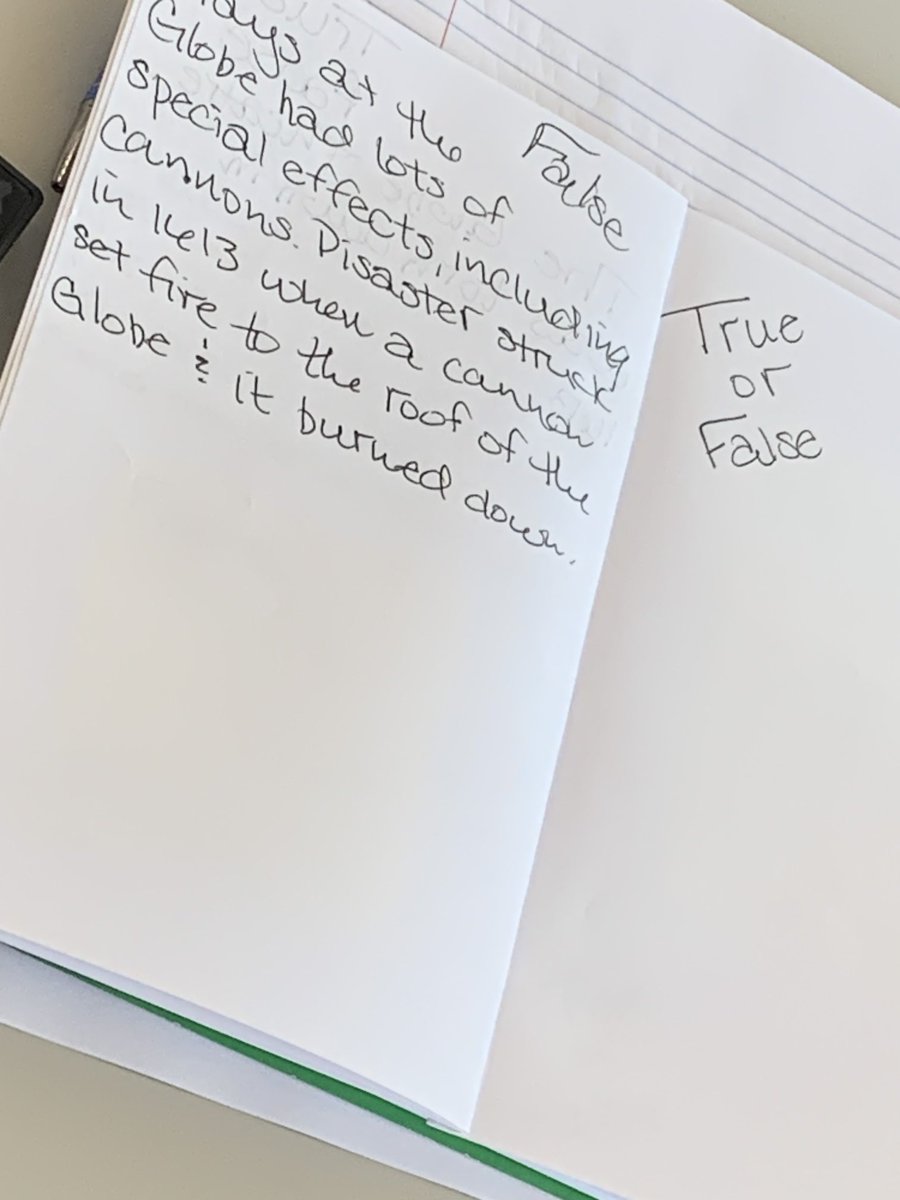 False
lays at the
Globe had lots of
special effects, including
cannons. Disaster struck
in 1613 when a cannon
set fire to the roof of the
Globe & it burned down.
True
or
False